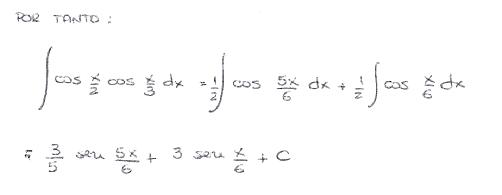 POR TANTO :
∫ cos x/2 cos x/3 dx = 1/2 ∫ cos 5x/6 dx + 1/2 ∫ cos x/6 dx
= 3/5 sen 5x/6 + 3 sen x/6 + C